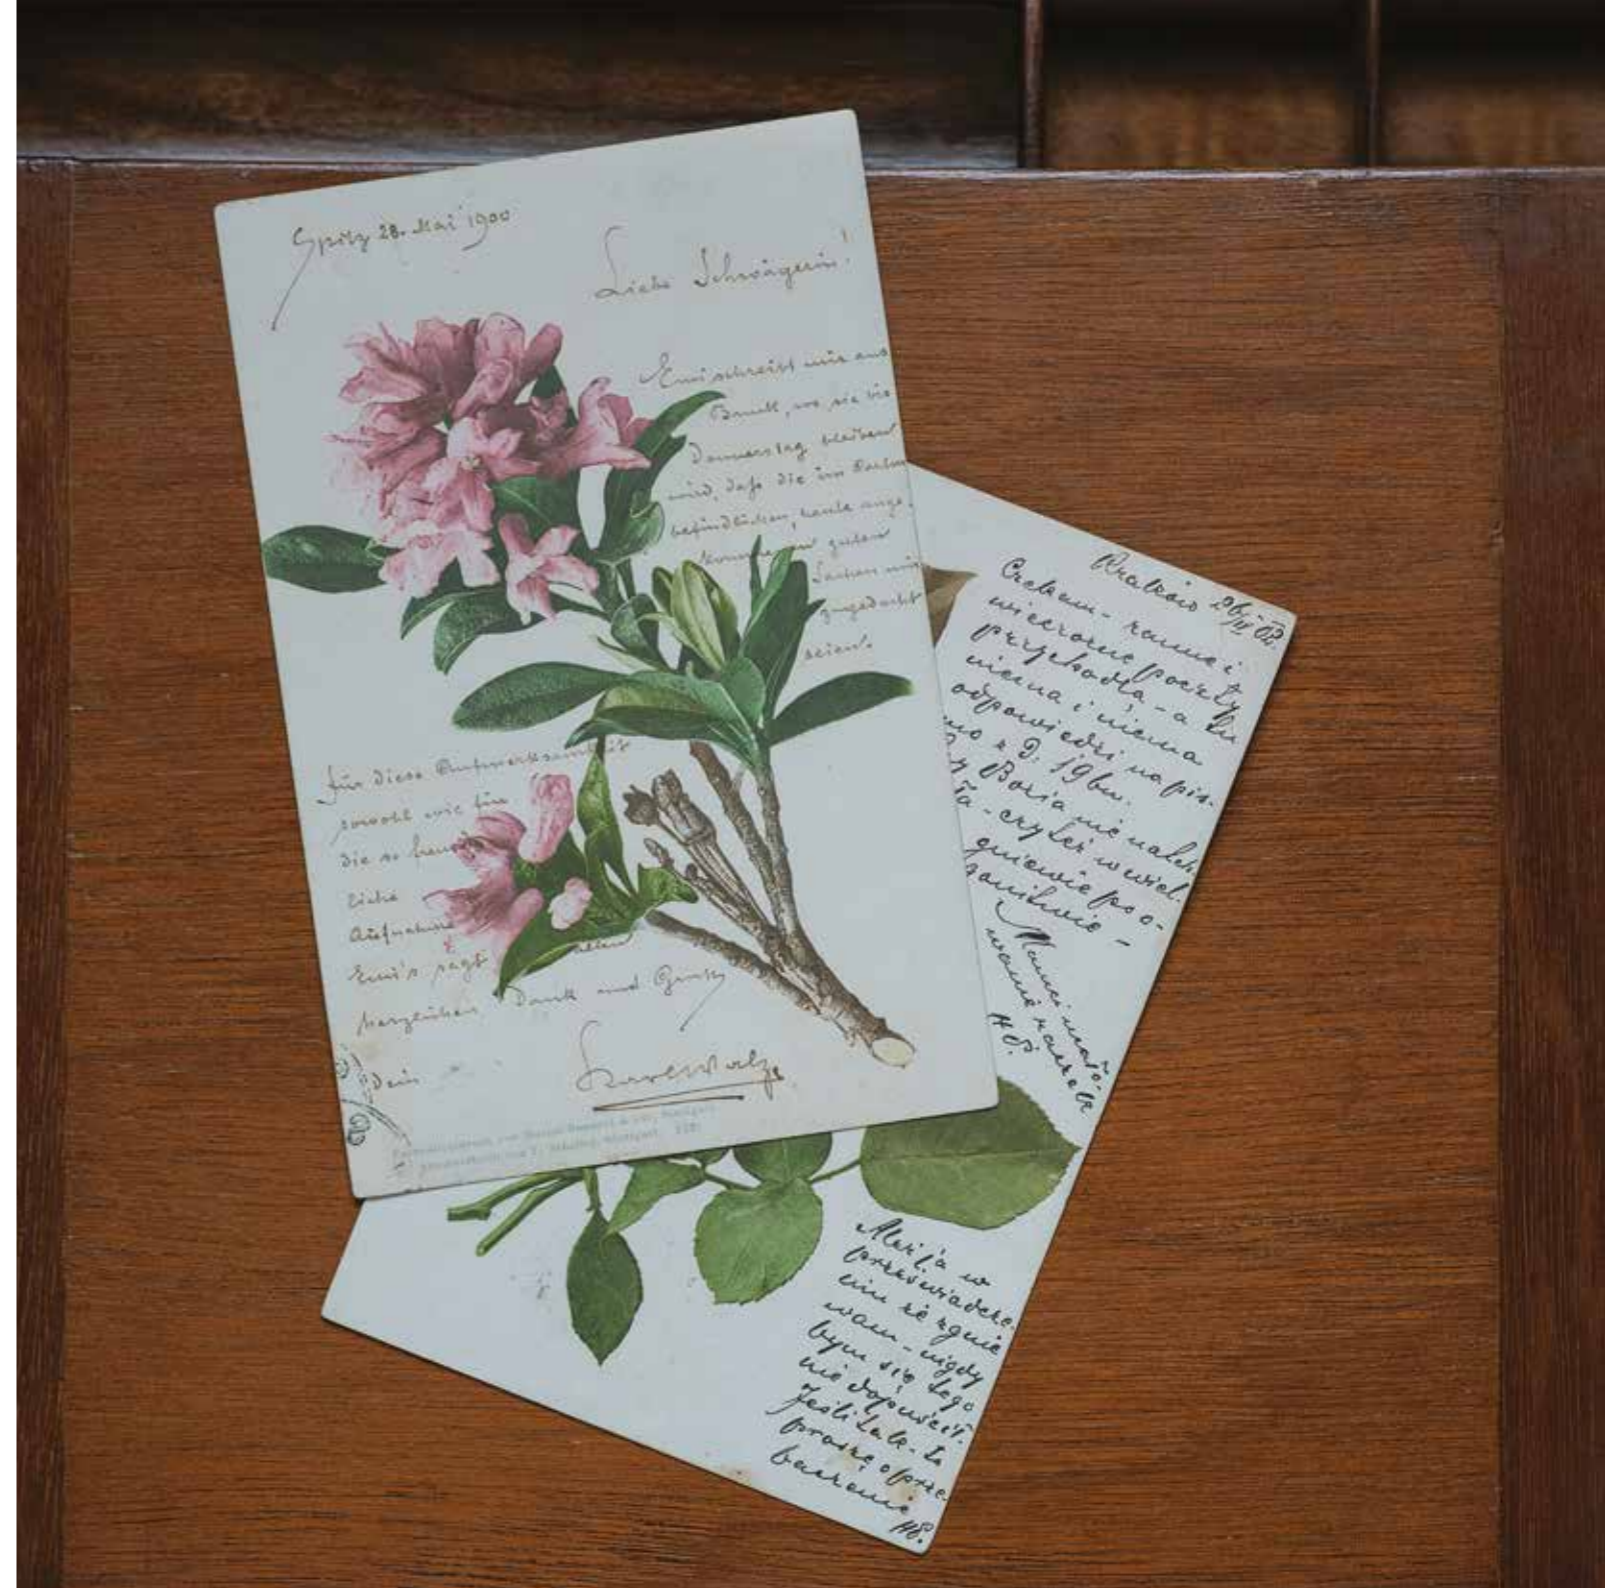 Spitz 28. Mai 1900
Liebe Schwägerin!
Emi schreibt mir aus
Bruck, wo sie bis
Donnerstag bleiben
wird, daß die im Carton
befindlichen, heute ange-
kommenen guten
Sachen mir
zugedacht
seien.
Für diese Aufmerksamkeit
sowohl wie für
die so freund
liche
Aufnahme
Emi's sagt allen
herzlichen Dank und Gruß
Dein
Karl Walz
Stuttgart
Kraków 26/IV 02.
Czekam - ranne i
wieczorne poczty
przychodzą - a tu
niema i niema
odpowiedzi na pis-
mo z D. 19 bm.
Czy Bozia nie nadesz-
ła - czy też w wiel.
gniewie po o-
Mamci uszano-
wanie rączek
HS.
Ależ ja w
przeświadcze-
niu że zgnie
wam - nigdy
bym się tego
nie dopuścił.
Jeśli tak - to
proszę o prze-
baczenie
HS.